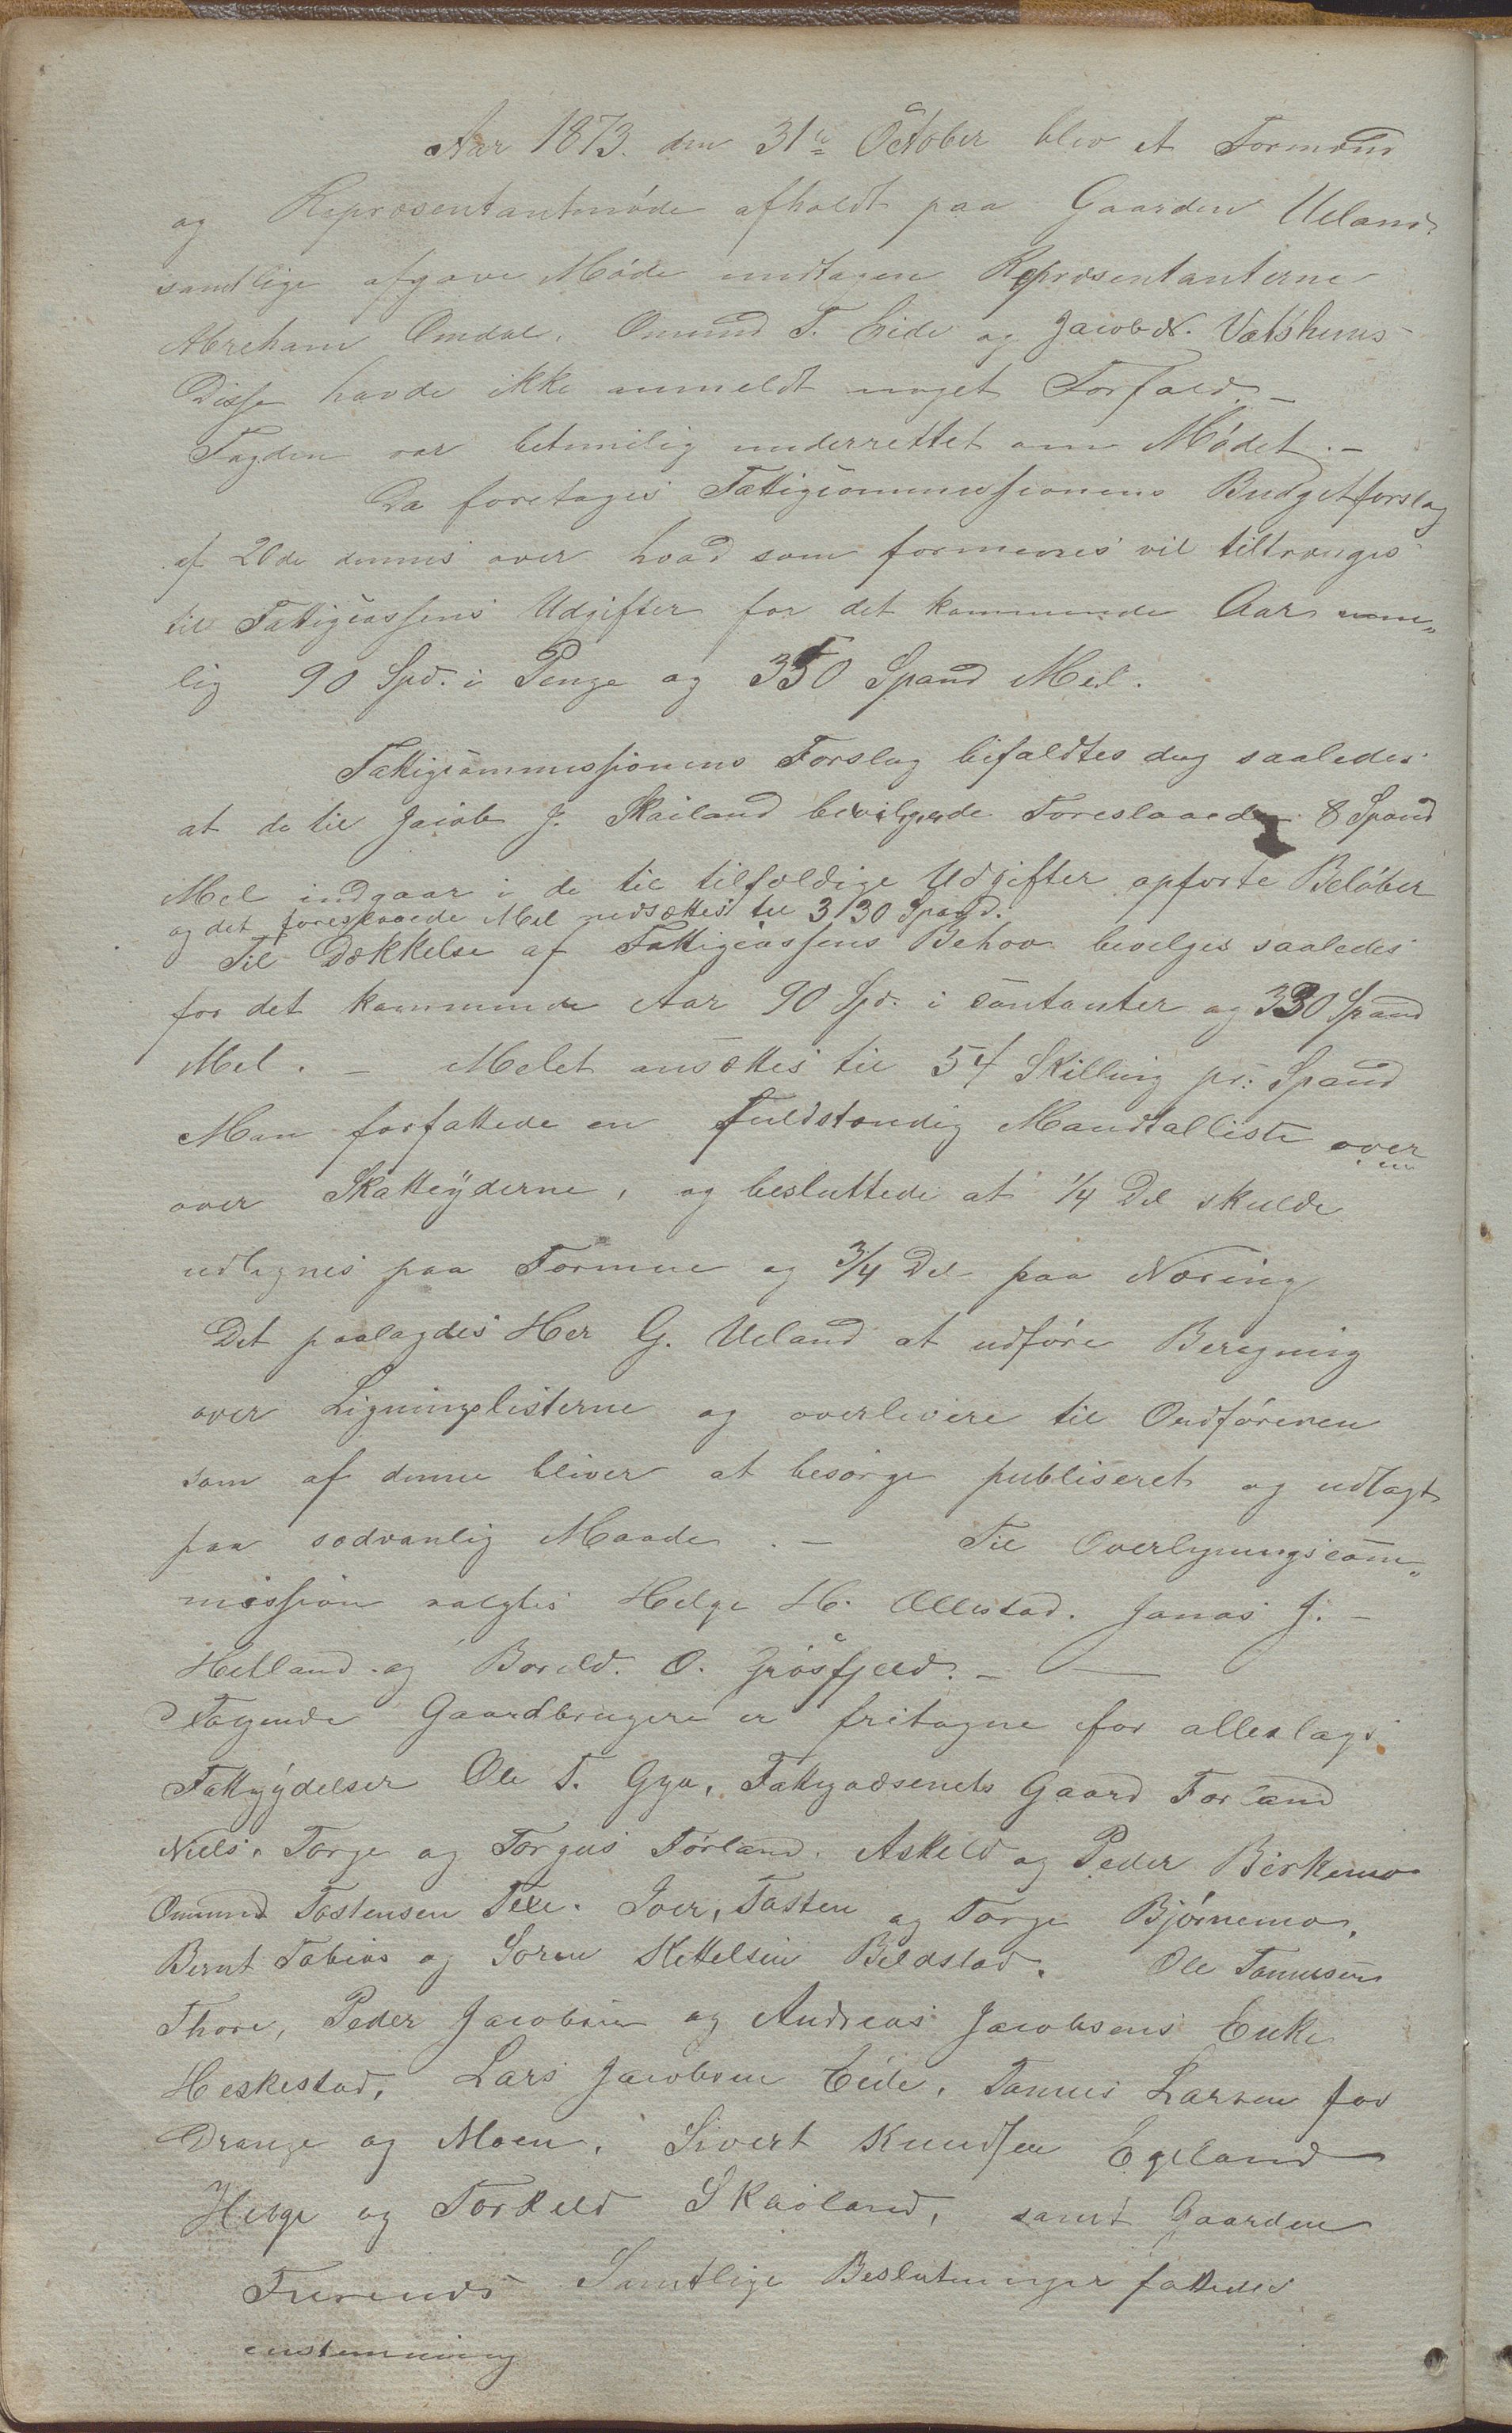 Aar 1873. den 31te October blev et Formænd
og Repræsentantmøde afholdt paa Gaarden Ueland.
samtlige afgave Møde undtagen Repræsentanterne
Abreham Omdal, Omund T. Eide og Jacob N. Vatshuus
Disse havde ikke anmeldt noget Forfald. –
Fogden var betimelig underrettet om Mødet. –
Da foretoges Fattigcommissionens Budgetforslag
af 20de dennes over hvad som formenes vil tiltrænges
til Fattigcassens Udgifter for det kommende Aar nem„
lig 90 Spd. i Penge og 350 Spand Mel.
Fattigcommissionens Forslag bifaldtes dog saaledes
at de til Jacob J. Skailand bevilgede Foreslaaede 8 Spand
Mel indgaar i de til tilfældige Udgifter opførte Beløber
og det foreslaaede Mel nedsættes til 330 Spand.
Til Dækkelse af Fattigcassens Behov bevelges saaledes
for det kommende Aar 90 Spd. i contanter og 330 Spand
Mel. – Melet ansættes til 54 Skilling pr: Spand
Man forfattede en Fuldstændig Mandtalliste over
over Skatteyderne, og besluttede at 1/4 Del skulde
udlignes paa Formue og 3/4 Del paa Næring
Det paalagdes Her G. Ueland at udføre Beregning
over Ligningslisterne og overlevere til Ordføreren
som af denne bliver at besørge publiseret og udlagt
paa sædvanlig Maade. – Til Overligningscom„
mission valgtes Helge H. Ollestad. Jonas J. –
Hetland og Boreld. O. Grøsfjeld. –
Følgende Gaardbrugere er fritagne for alleslags
Fattigydelser Ole T. Gya, Fattigvæsenets Gaard Førland
Niels, Torge og Torgus Førland. Askeld og Peder Birkemo
Omund Tostensen Texe. Ioer, Tosten og Torge Bjørnemo,
Bernt Tobias og Soren Kettelsen Bildstad. Ole Tønnesen
Thore, Peder Jacobsen og Andreas Jacobsens Enke
Heskestad, Lars Jacobsen Eide, Tønnes Larsen for
Drange og Moen, Sivert Knudsen Egeland
Helge og Torkeld Skailand, samt Gaarden
Furends Samtlige Beslutninger fattedes
enstemmig